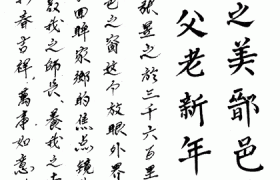 之美鄙邑
父老新年
張昱之於三千六百里
邑之窗这个放眼外界
回眸家鄉的焦点鏡
我之師長、養我之
春吉祥，萬事如意